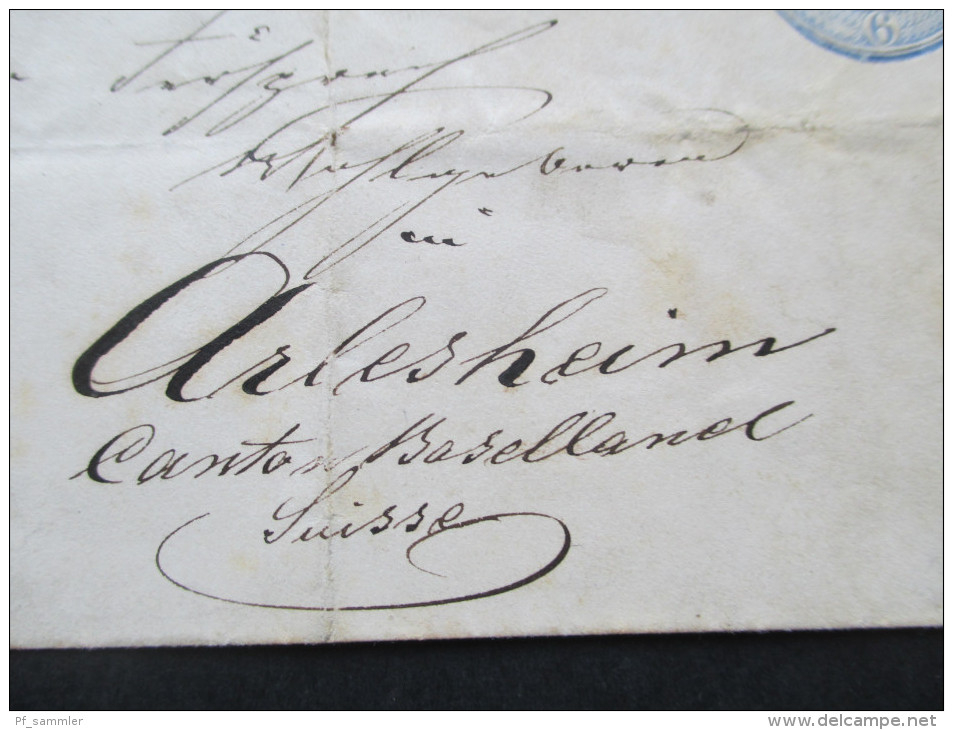 6
Fürsprech
Wohlgeboren
in
Arlesheim
Canton Baselland
Suisse
Pf_sammler
www.delcampe.net